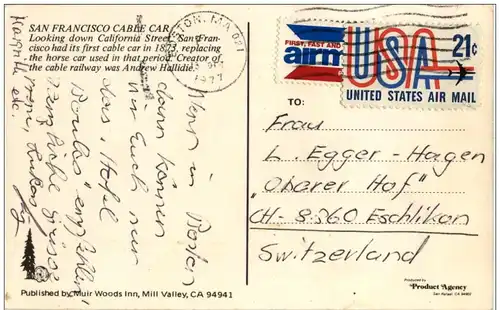 SAN FRANCISCO CABLE CAR
Looking down California Street. San Fran-
cisco had its first cable car in 1873, replacing
the horse car used in that period. Creator of
the cable railway was Andrew Hallidie.
Wenn in Boston
dann können
wir Euch nur
das Hotel
herzliche Grüsse
MA 021
1977
FIRST, FAST AND
airm
USA
21¢
UNITED STATES AIR MAIL
TO:
Frau
L. Egger-Hagen
"Oberer Hof"
CH-8360 Eschlikon
Switzerland
Published by Muir Woods Inn, Mill Valley, CA 94941
Produced by
Product Agency
San Rafael, CA